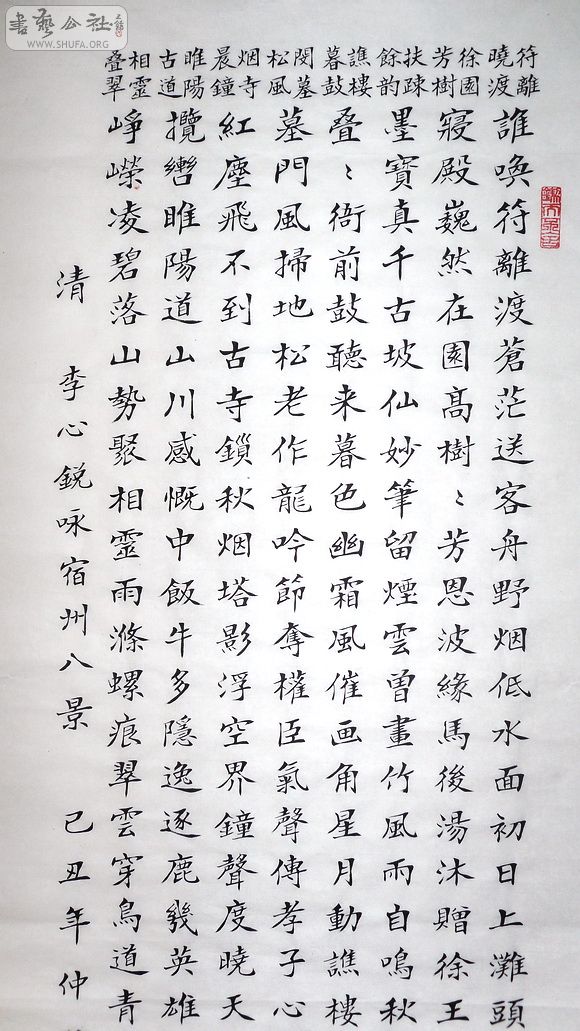 書藝公社
WWW.SHUFA.ORG
符離
曉渡
誰喚符離渡蒼茫送客舟野烟低水面初日上灘頭
徐園
芳樹
寢殿巍然在園高樹〻芳恩波緣馬後湯沐贈徐王
扶疎
餘韵
墨寶真千古坡仙妙筆留煙雲曾畫竹風雨自鳴秋
譙樓
暮鼓
叠〻衙前鼓聽来暮色幽霜風催画角星月動譙樓
閔墓
松風
墓門風掃地松老作龍吟節奪權臣氣聲傳孝子心
烟寺
晨鐘
紅塵飛不到古寺鎖秋烟塔影浮空界鐘聲度曉天
睢陽
古道
攬轡睢陽道山川感慨中飯牛多隱逸逐鹿幾英雄
相靈
叠翠
崢嶸凌碧落山勢聚相靈雨滌螺痕翠雲穿鳥道青
清 李心鋭咏宿州八景 己丑年仲